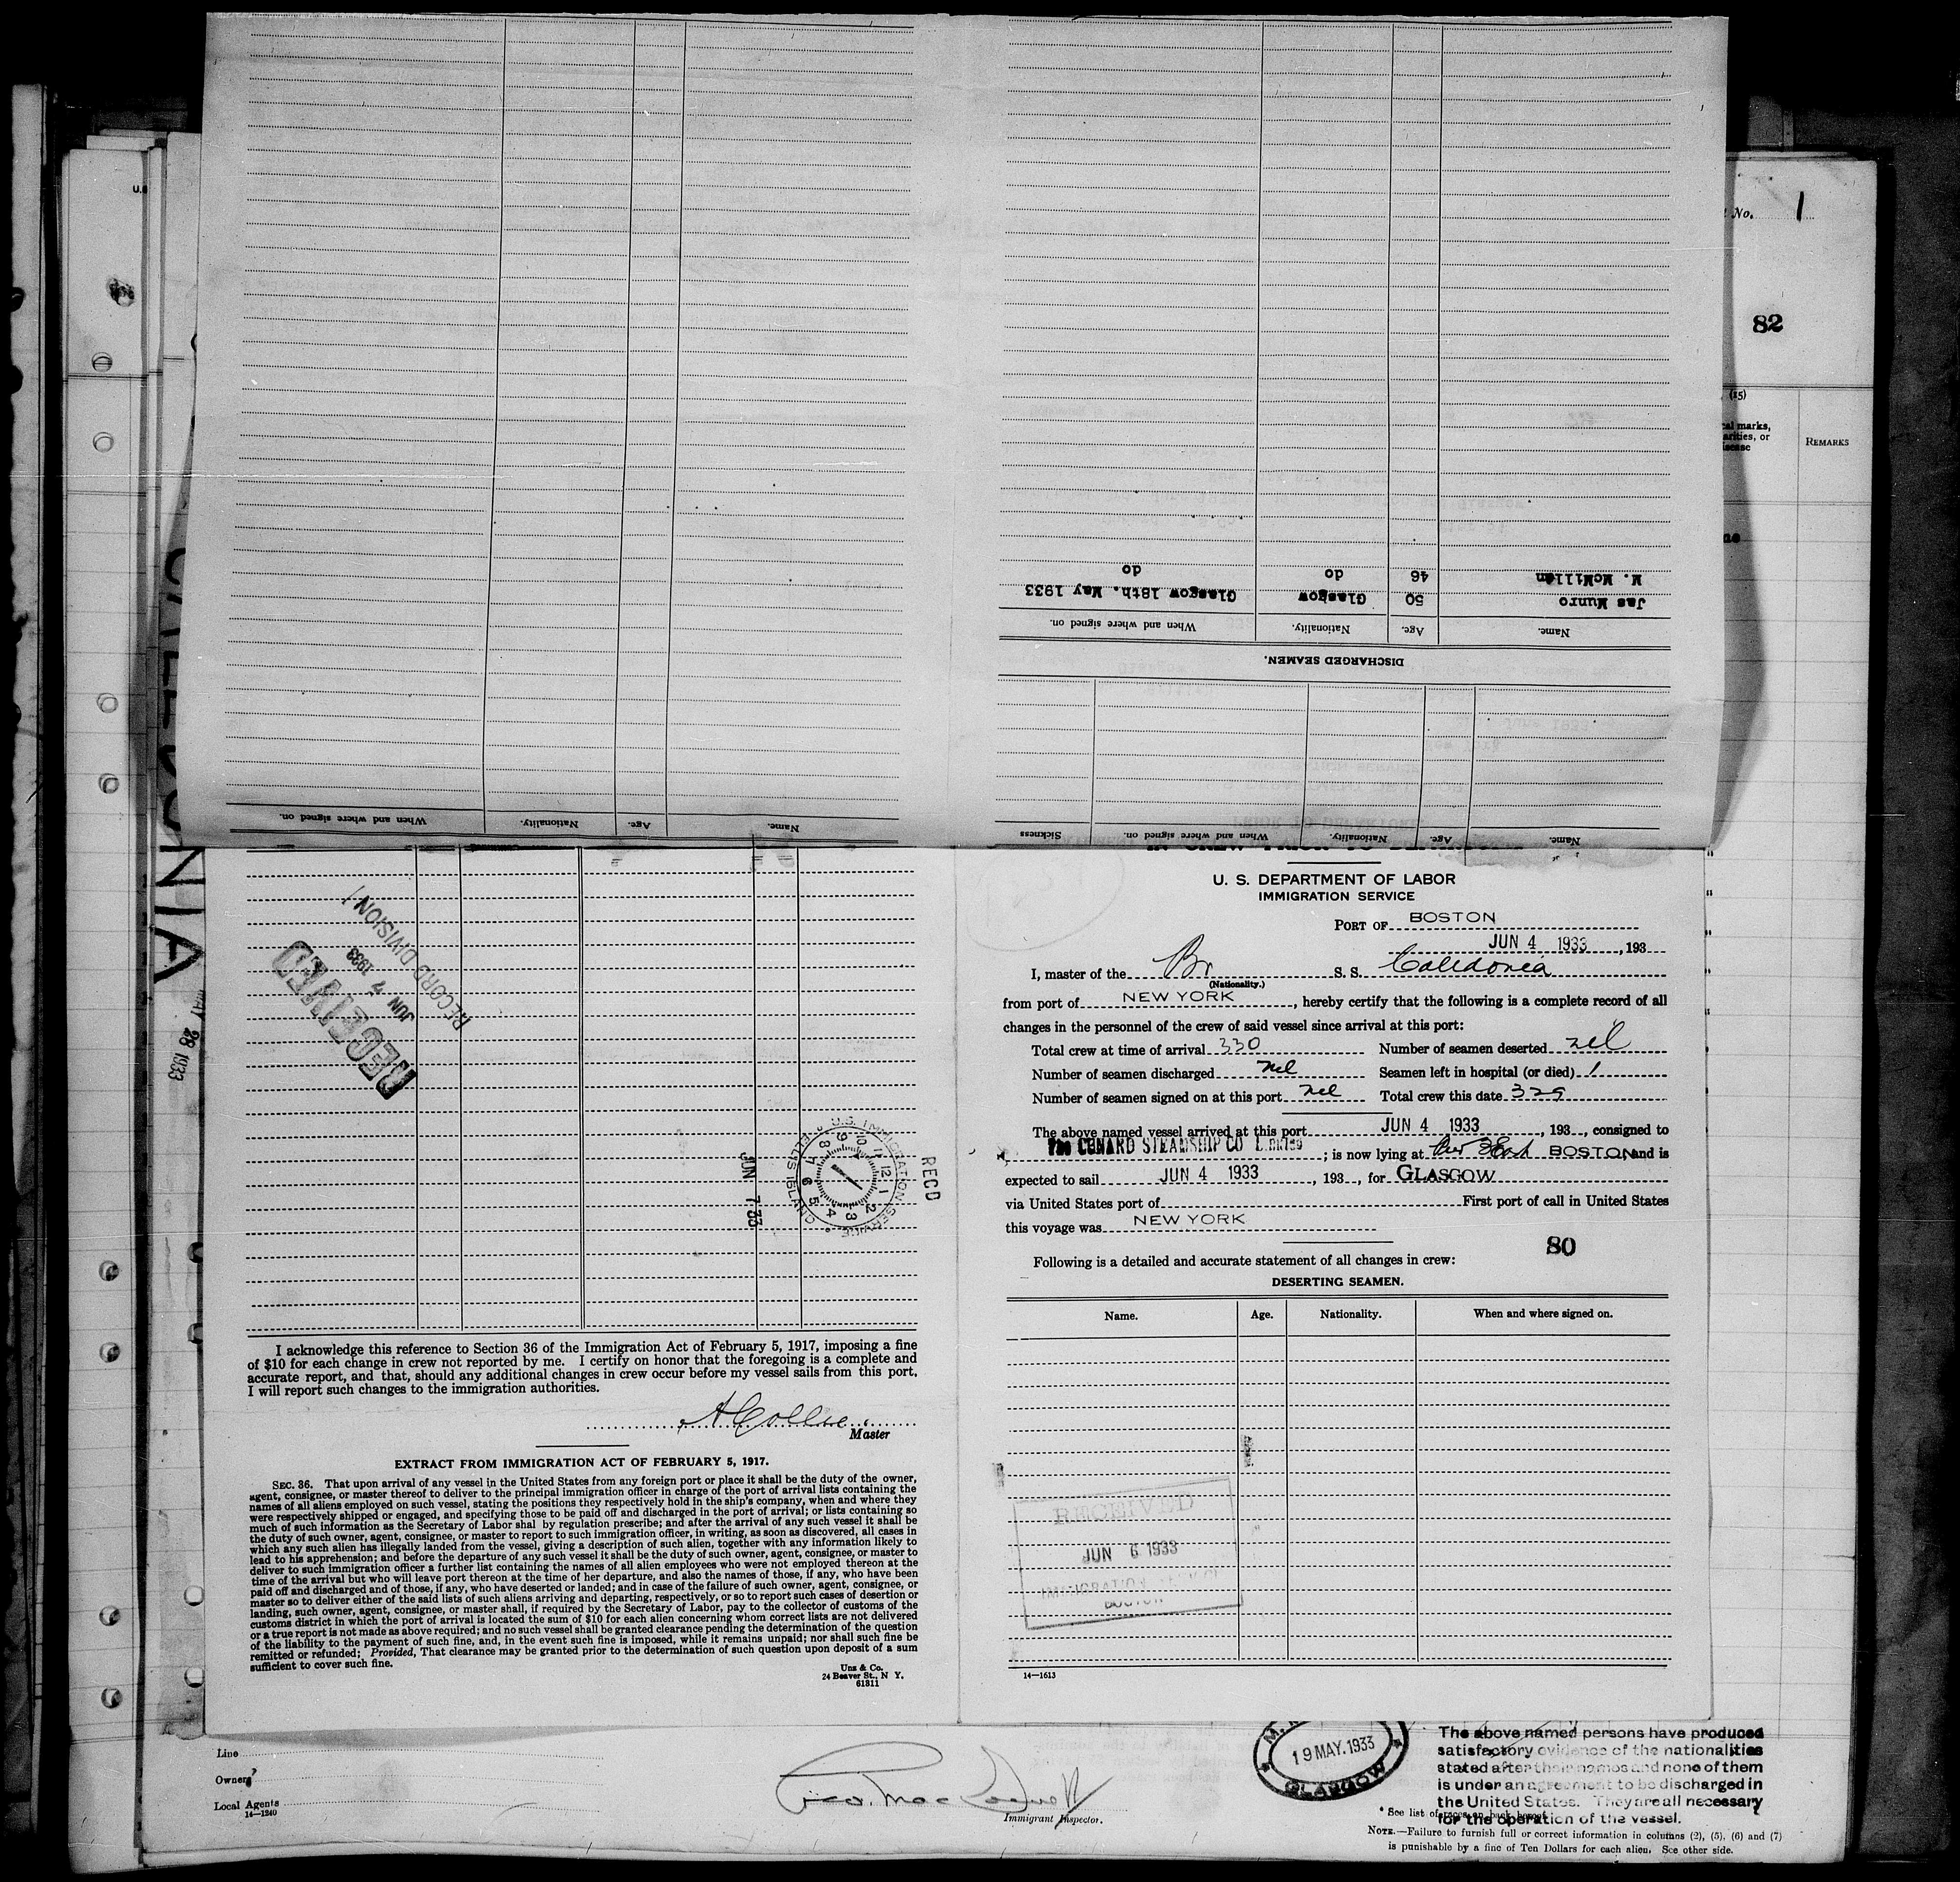 No. 1
82
(15)
REMARKS
Name. Age. Nationality. When and where signed on. Sickness
DISCHARGED SEAMEN.
Name. Age. Nationality. When and where signed on.
Jas Munro 50 Glasgow Glasgow 18th. May 1933
W. McMillan 46 do do
Name. Age. Nationality. When and where signed on.
RECORD DIVISION
JUN 7 1933
RECEIVED
MAY 28 1933
U.S. IMMIGRATION SERVICE
ELLIS ISLAND
JUN 7 33
RECD
I acknowledge this reference to Section 36 of the Immigration Act of February 5, 1917, imposing a fine
of $10 for each change in crew not reported by me. I certify on honor that the foregoing is a complete and
accurate report, and that, should any additional changes in crew occur before my vessel sails from this port,
I will report such changes to the immigration authorities.
A Collie
Master
EXTRACT FROM IMMIGRATION ACT OF FEBRUARY 5, 1917.
SEC. 36. That upon arrival of any vessel in the United States from any foreign port or place it shall be the duty of the owner,
agent, consignee, or master thereof to deliver to the principal immigration officer in charge of the port of arrival lists containing the
names of all aliens employed on such vessel, stating the positions they respectively hold in the ship's company, when and where they
were respectively shipped or engaged, and specifying those to be paid off and discharged in the port of arrival; or lists containing so
much of such information as the Secretary of Labor shal by regulation prescribe; and after the arrival of any such vessel it shall be
the duty of such owner, agent, consignee, or master to report to such immigration officer, in writing, as soon as discovered, all cases in
which any such alien has illegally landed from the vessel, giving a description of such alien, together with any information likely to
lead to his apprehension; and before the departure of any such vessel it shall be the duty of such owner, agent, consignee, or master to
deliver to such immigration officer a further list containing the names of all alien employees who were not employed thereon at the
time of the arrival but who will leave port thereon at the time of her departure, and also the names of those, if any, who have been
paid off and discharged and of those, if any, who have deserted or landed; and in case of the failure of such owner, agent, consignee, or
master so to deliver either of the said lists of such aliens arriving and departing, respectively, or so to report such cases of desertion or
landing, such owner, agent, consignee, or master shall, if required by the Secretary of Labor, pay to the collector of customs of the
customs district in which the port of arrival is located the sum of $10 for each alien concerning whom correct lists are not delivered
or a true report is not made as above required; and no such vessel shall be granted clearance pending the determination of the question
of the liability to the payment of such fine, and, in the event such fine is imposed, while it remains unpaid; nor shall such fine be
remitted or refunded; Provided, That clearance may be granted prior to the determination of such question upon deposit of a sum
sufficient to cover such fine.
Unz & Co.
24 Beaver St., N Y.
61311
U. S. DEPARTMENT OF LABOR
IMMIGRATION SERVICE
PORT OF BOSTON
JUN 4 1933, 193
I, master of the Br S. S. Caledonia
(Nationality.)
from port of NEW YORK, hereby certify that the following is a complete record of all
changes in the personnel of the crew of said vessel since arrival at this port:
Total crew at time of arrival 330 Number of seamen deserted nil
Number of seamen discharged nil Seamen left in hospital (or died) 1
Number of seamen signed on at this port nil Total crew this date 329
The above named vessel arrived at this port JUN 4 1933, 193, consigned to
The CUNARD STEAMSHIP CO Limited; is now lying at BOSTON and is
expected to sail JUN 4 1933, 193, for GLASGOW
via United States port of First port of call in United States
this voyage was NEW YORK
80
Following is a detailed and accurate statement of all changes in crew:
DESERTING SEAMEN.
Name. Age. Nationality. When and where signed on.
RECEIVED
JUN 6 1933
BOSTON
14—1613
Line
Owners
Local Agents
14—1240
Immigrant Inspector.
19 MAY. 1933
GLASGOW
The above named persons have produced
satisfactory evidence of the nationalities
stated after their names and none of them
is under an agreement to be discharged in
the United States. They are all necessary
for the operation of the vessel.
* See list of races on back hereof.
NOTE.—Failure to furnish full or correct information in columns (2), (5), (6) and (7)
is punishable by a fine of Ten Dollars for each alien. See other side.